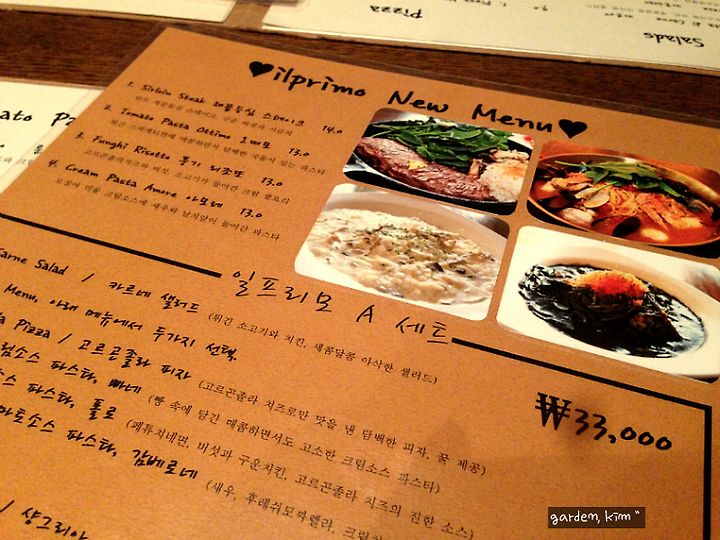 Pizza
Salads
♥ilprimo New Menu♥
1. Sirloin Steak 해물등심 스테이크 14.0
2. Tomato Pasta Ottimo 오띠모 13.0
3. Funghi Risotto 풍기 리조또 13.0
고르곤졸라치즈와 버섯, 소고기가 들어간 크림 쌀요리
4. Cream Pasta Amore 아모레 13.0
오징어 먹물 크림소스에 새우와 날치알이 들어간 파스타
일프리모 A 세트
₩33,000
Carne Salad / 카르네 샐러드 (튀긴 소고기와 치킨, 새콤달콤 아삭한 샐러드)
Menu, 아래 메뉴에서 두가지 선택
Pizza / 고르곤졸라 피자 (고르곤졸라 치즈로만 맛을 낸 담백한 피자, 꿀 제공)
파스타, 빠네 (빵 속에 담긴 매콤하면서도 고소한 크림소스 파스타)
파스타, 폴로 (페튜치네면, 버섯과 구운치킨, 고르곤졸라 치즈의 진한 소스)
토마토소스 파스타, 감베로네 (새우, 후레쉬모짜렐라,
/ 샹그리아
garden, kim "